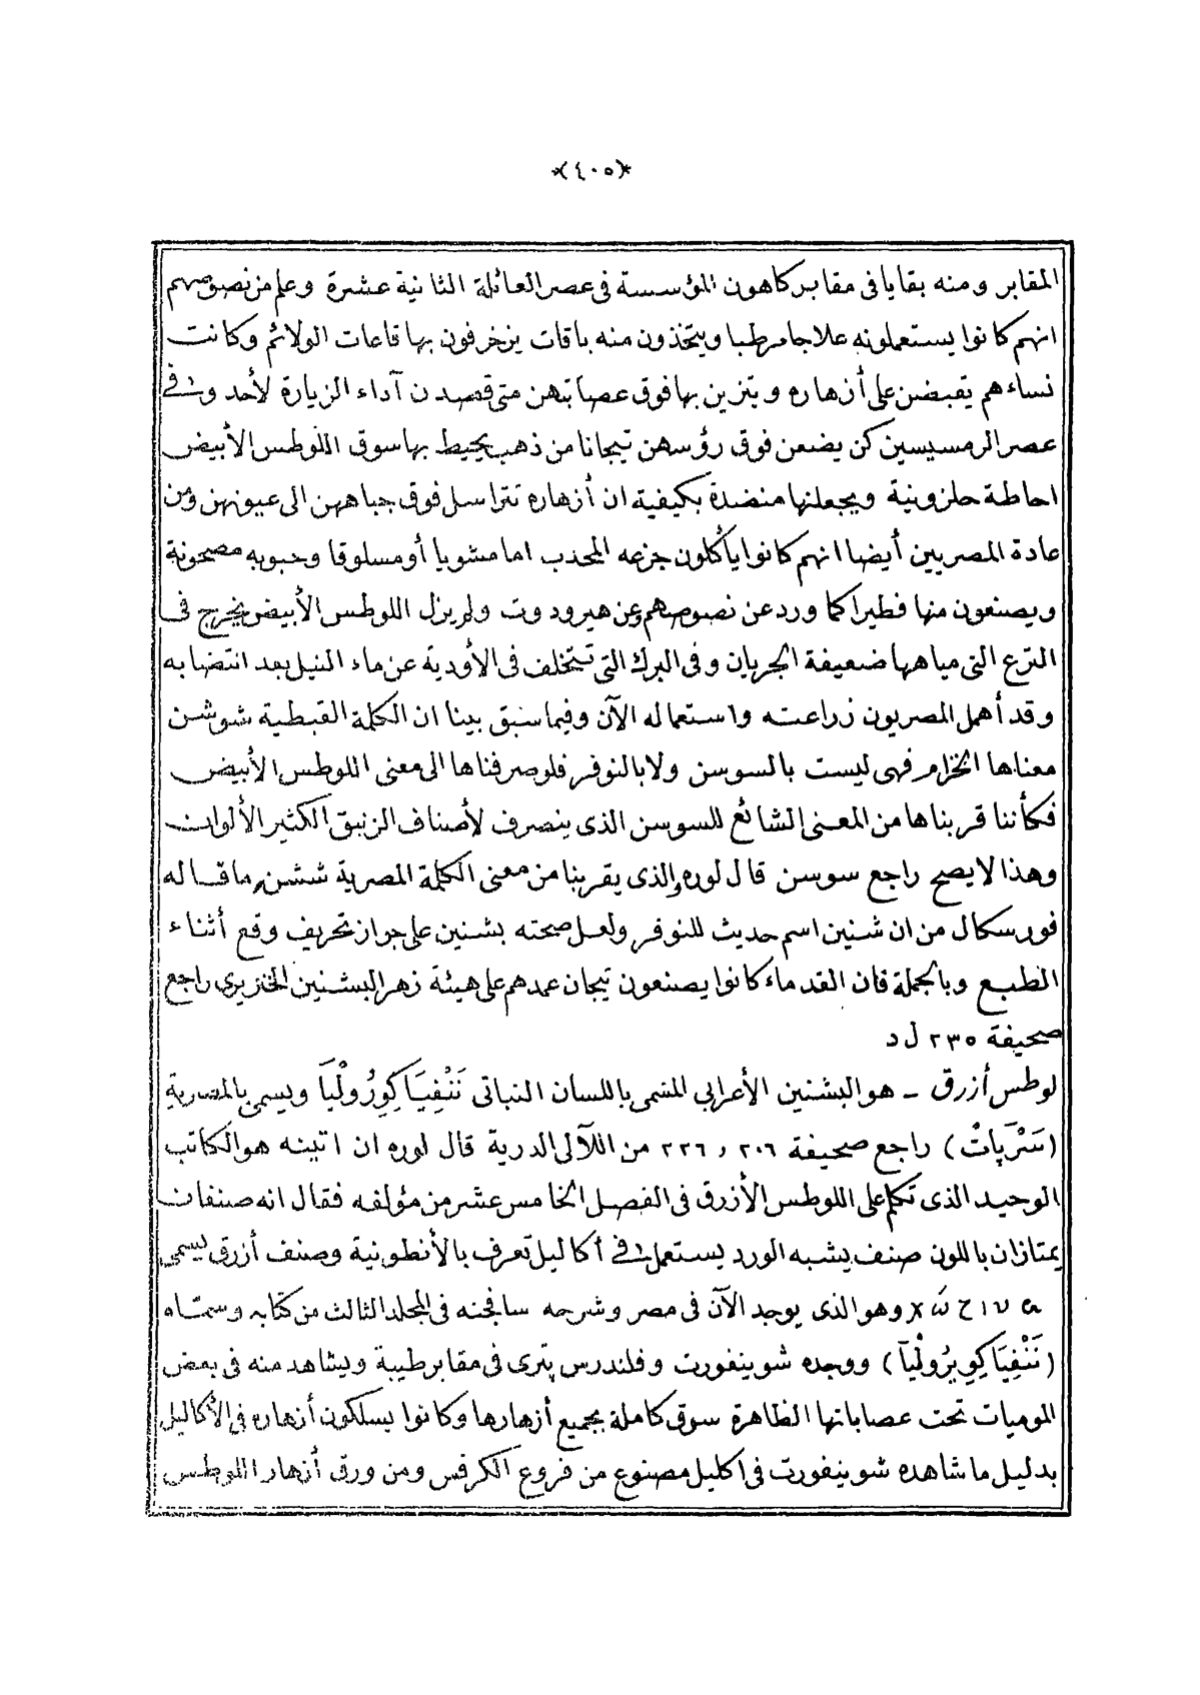 *(٤٠٥)*
المقابر ومنه بقايا فى مقابر كاهون المؤسسة فى عصر العائلة الثانية عشرة وعلم من نصوصهم
انهم كانوا يستعملونه علاجا مرطبا ويتخذون منه باقات يزخرفون بها قاعات الولائم وكانت
نساءهم يقبضن على أزهاره ويتزين بها فوق عصابتهن متى قصدن آداء الزيارة لأحد وفى
عصر الرمسيسين كن يضعن فوق رؤسهن تيجانا من ذهب يحيط بها سوق اللوطس الأبيض
احاطة حلزونية ويجعلنها منضدة بكيفية ان أزهاره تتراسل فوق جباههن الى عيونهن ومن
عادة المصريين أيضا انهم كانوا يأكلون جزعه المحدب اما مشويا أو مسلوقا وحبوبه مصحونة
ويصنعون منها فطيرا كما ورد عن نصوصهم وعن هيرودوت ولم يزل اللوطس الأبيض يخرج فى
الترع التى مياهها ضعيفة الجريان وفى البرك التى تتخلف فى الأودية عن ماء النيل بعد انتضابه
وقد أهمل المصريون زراعته واستعماله الآن وفيما سبق بينا ان الكلمة القبطية شوشن
معناها الخزام فهى ليست بالسوسن ولا بالنوفر فلو صرفناها الى معنى اللوطس الأبيض
فكأننا قربناها من المعنى الشائع للسوسن الذى ينصرف لأصناف الزنبق الكثير الألوان
وهذا لا يصح راجع سوسن قال لوره والذى يقربنا من معنى الكلمة المصرية ششن ما قاله
فورسكال من ان شنين اسم حديث للنوفر ولعل صحته بشنين على جواز تحريف وقع أثناء
الطبع وبالجملة فان القدماء كانوا يصنعون تيجان عمدهم على هيئة زهر البشنين الخنزيرى راجع
صحيفة ٢٣٥ ل د
لوطس أزرق - هو البشنين الأعرابي المسمى باللسان النباتى نَنْفِيَا كِورُولْيَا ويسمى بالمصرية
(سَرْپَاتْ) راجع صحيفة ٢٠٦ و ٢٢٦ من اللآلى الدرية قال لوره ان اتينه هو الكاتب
الوحيد الذى تكلم على اللوطس الأزرق فى الفصل الخامس عشر من مؤلفه فقال انه صنفان
يمتازان باللون صنف يشبه الورد يستعمل فى أكاليل تعرف بالأنطونية وصنف أزرق يسمى
وهو الذى يوجد الآن فى مصر وشرحه سافجنه فى المجلد الثالث من كتابه وسمتاه
(نَنْفِيَا كِويرُولْيَآ) ووجده شوينفورت وفلندرس پترى فى مقابر طيبة ويشاهد منه فى بعض
الموميات تحت عصاباتها الظاهرة سوق كاملة بجميع أزهارها وكانوا يسلكون أزهاره فى الأكاليل
بدليل ما شاهده شوينفورت فى اكليل مصنوع من فروع الكرفس ومن ورق أزهار اللوطس